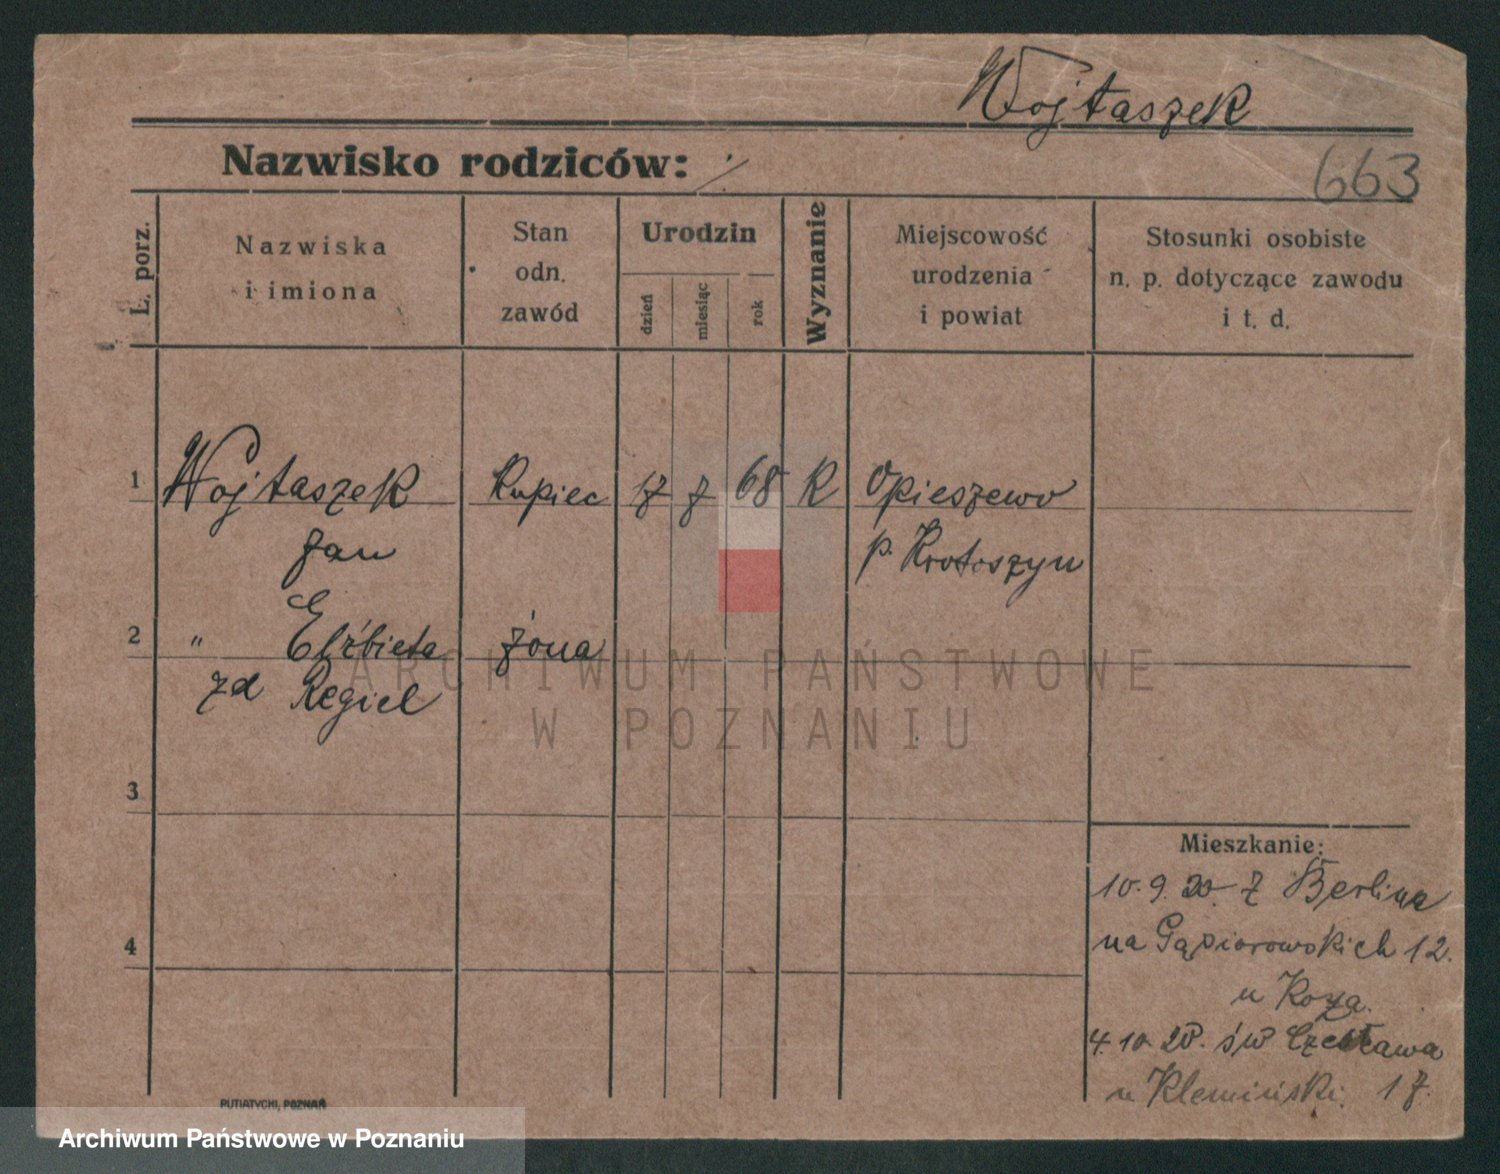 Wojtaszek
Nazwisko rodziców: ./.
663
L. porz.
Nazwiska
i imiona
Stan
odn.
zawód
Urodzin
dzień
miesiąc
rok
Wyznanie
Miejscowość
urodzenia
i powiat
Stosunki osobiste
n. p. dotyczące zawodu
i t. d.
1 Wojtaszek Kupiec 17 7 68 K Opieszewo
Jan p. Krotoszyn
2 " Elźbieta żona
zd Regiel
ARCHIWUM PAŃSTWOWE
W POZNANIU
3
4
Mieszkanie:
10.9.20. z Berlina
na Gąsiorowskich 12.
u Koza.
4.10.20. św Czesława
u Klemiński 17.
PUTIATYCKI, POZNAŃ
Archiwum Państwowe w Poznaniu